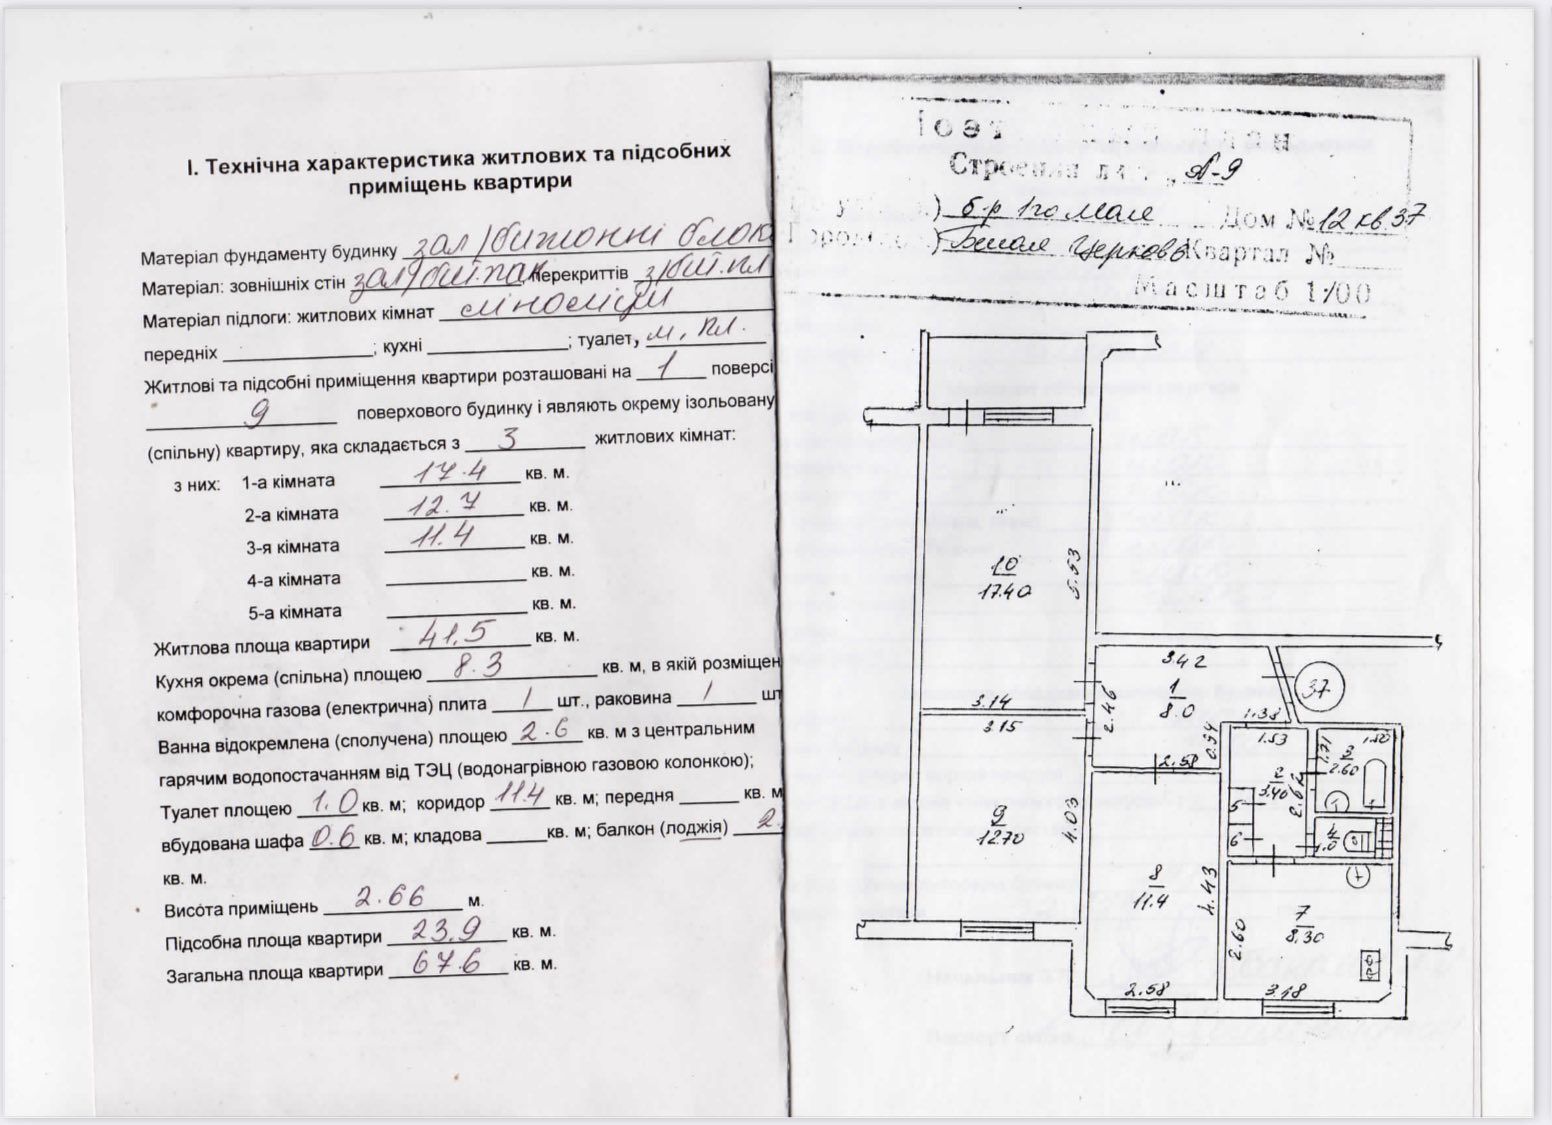 І. Технічна характеристика житлових та підсобних
приміщень квартири
Матеріал фундаменту будинку зал/битонні блок
Матеріал: зовнішніх стін зал/бит.пан, перекриттів з/бит.пл
Матеріал підлоги: житлових кімнат ліноліум
передніх ; кухні ; туалет, м. пл.
Житлові та підсобні приміщення квартири розташовані на 1 поверсі
9 поверхового будинку і являють окрему ізольовану
(спільну) квартиру, яка складається з 3 житлових кімнат:
з них: 1-а кімната 17.4 кв. м.
2-а кімната 12.7 кв. м.
3-я кімната 11.4 кв. м.
4-а кімната кв. м.
5-а кімната кв. м.
Житлова площа квартири 41.5 кв. м.
Кухня окрема (спільна) площею 8.3 кв. м, в якій розміщен
комфорочна газова (електрична) плита 1 шт., раковина 1 шт
Ванна відокремлена (сполучена) площею 2.6 кв. м з центральним
гарячим водопостачанням від ТЭЦ (водонагрівною газовою колонкою);
Туалет площею 1.0 кв. м; коридор 11.4 кв. м; передня кв. м
вбудована шафа 0.6 кв. м; кладова кв. м; балкон (лоджія) 2.
кв. м.
Висота приміщень 2.66 м.
Підсобна площа квартири 23.9 кв. м.
Загальна площа квартири 67.6 кв. м.
план
Строения лит. „А-9
) б-р 1го Мая Дом № 12 кв.37
) Белая Церковь Квартал №
Масштаб 1:/00
10
17.40
5.53
3.42
1
8.0
37
3.14
2.46
1.38
3.15
0.94
1.53
1.71
3
2.60
1.50
2.58
2
3.40
2.62
5
4
1.0
6
9
12.70
4.03
8
11.4
4.43
7
8.30
2.60
2.58
3.18